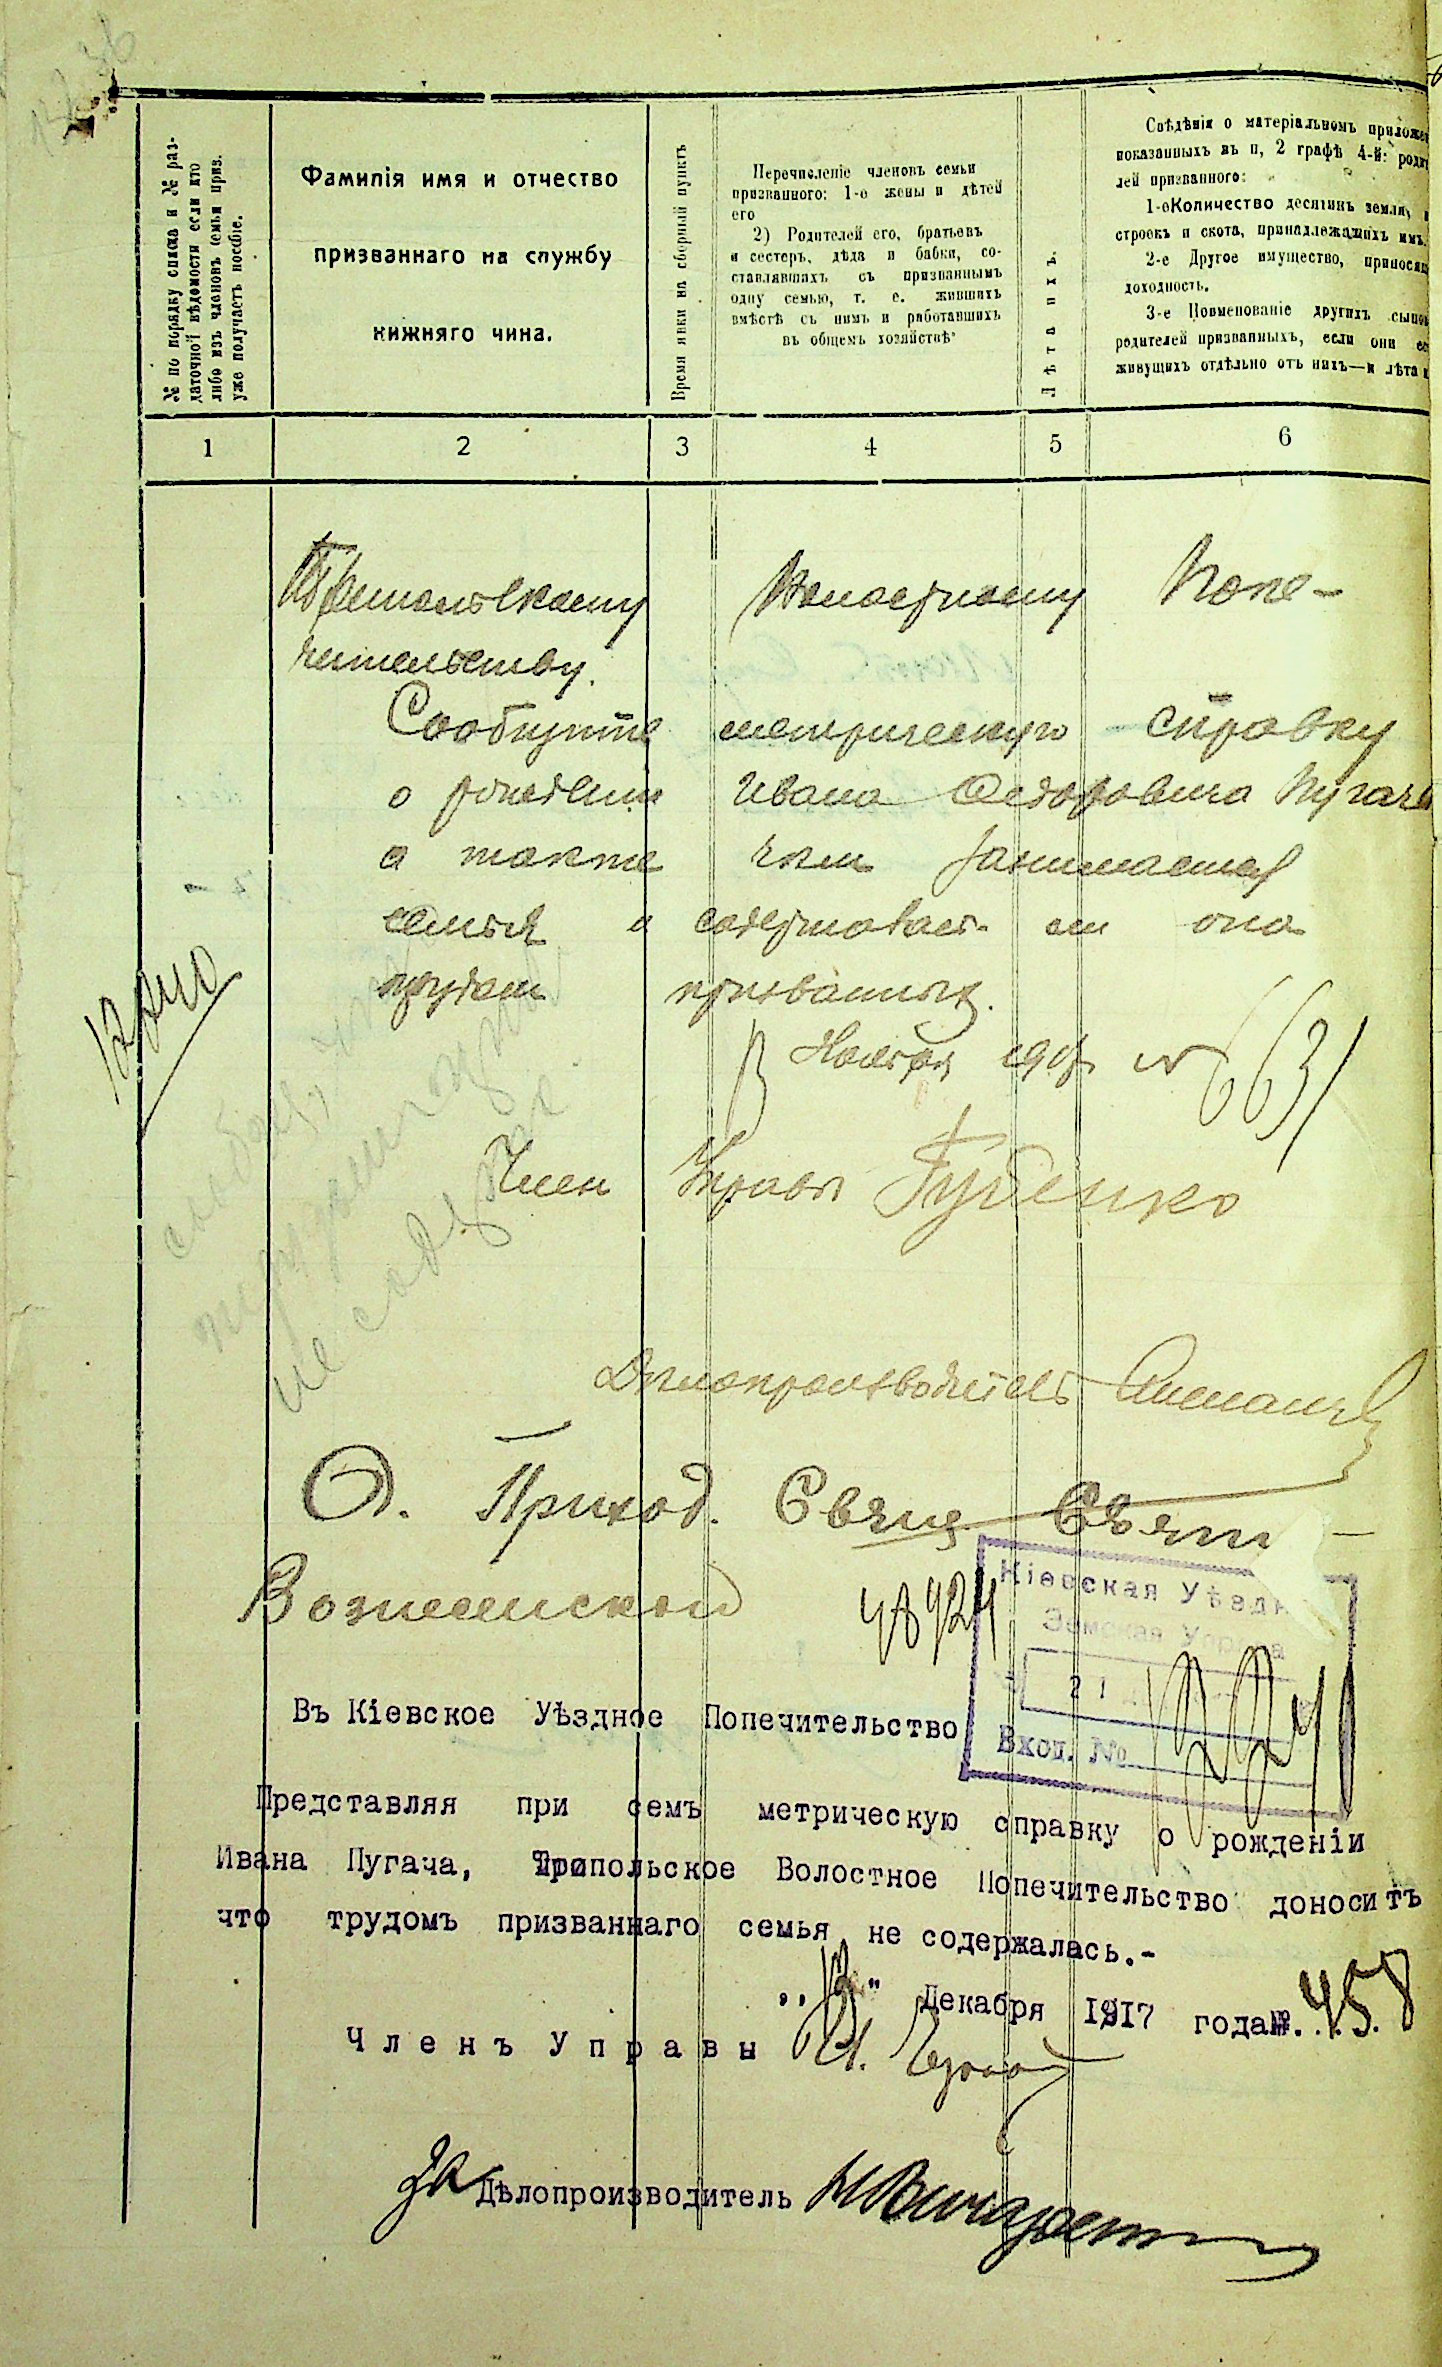 № по порядку списка и № раз-
даточной вѣдомости если кто
либо изъ членовъ семьи приз.
уже получаетъ пособіе.
Фамилія имя и отчество
призваннаго на службу
нижняго чина.
Время явки на сборный пунктъ
Перечисленіе членовъ семьи
призваннаго: 1-о жены и дѣтей
его
2) Родителей его, братьевъ
и сестеръ, дѣда и бабки, со-
ставлявшихъ съ призваннымъ
одну семью, т. е. жившихъ
вмѣстѣ съ нимъ и работавшихъ
въ общемъ хозяйствѣ
Лѣта ихъ.
Свѣдѣнія о матеріальномъ
показанныхъ въ п, 2 графѣ 4-й:
лей призваннаго:
1-е Количество десятинъ земли,
строекъ и скота, принадлежащихъ имъ.
2-е Другое имущество,
доходность.
3-е Поименованіе другихъ
родителей призванныхъ, если они
живущихъ отдѣльно отъ нихъ—и лѣта
1 2 3 4 5 6
Трипольскому Волостному Попе-
чительству.
Сообщите метрическую справку
о рожденіи Ивана Федоровича Пугача
а также чем занимается
семья и содержалась ли она
трудом призванного.
Ноября 1917 № 6631
Член Управы Губенко
Делопроизводитель
О. Приход. Свящ. Свят
Вознесенской
48924
Кіевская Уѣздн
Земская Управа
21
Вход. №
Въ Кіевское Уѣздное Попечительство
Представляя при семъ метрическую справку о рожденіи
Ивана Пугача, Трипольское Волостное Попечительство доноситъ
что трудомъ призваннаго семья не содержалась.-
,, " Декабря 1917 года №...458
Членъ Управы
За Дѣлопроизводитель